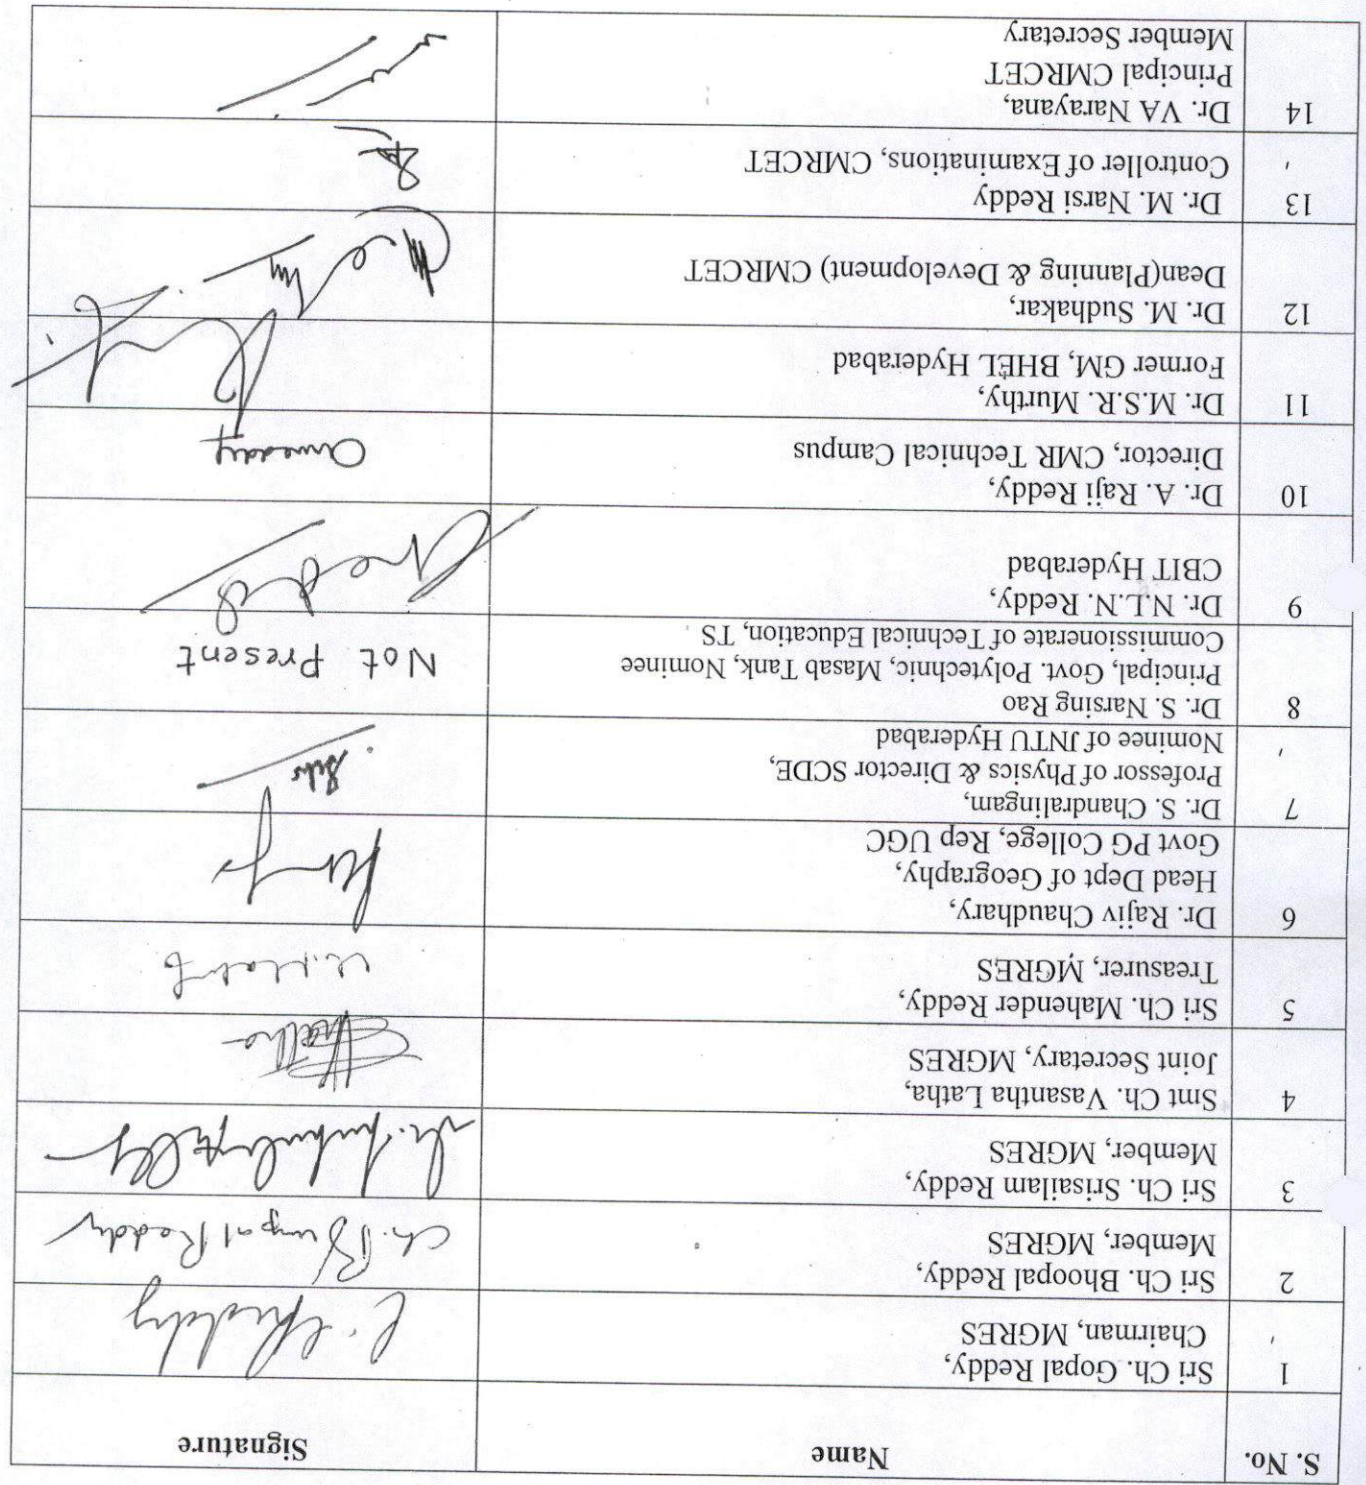 S. No. Name Signature
1 Sri Ch. Gopal Reddy,
Chairman, MGRES
2 Sri Ch. Bhoopal Reddy, Ch. Bhoopal Reddy
Member, MGRES
3 Sri Ch. Srisailam Reddy,
Member, MGRES
4 Smt Ch. Vasantha Latha,
Joint Secretary, MGRES
5 Sri Ch. Mahender Reddy,
Treasurer, MGRES
6 Dr. Rajiv Chaudhary,
Head Dept of Geography,
Govt PG College, Rep UGC
7 Dr. S. Chandralingam,
Professor of Physics & Director SCDE,
Nominee of JNTU Hyderabad
8 Dr. S. Narsing Rao
Principal, Govt. Polytechnic, Masab Tank, Nominee Not Present
Commissionerate of Technical Education, TS
9 Dr. N.L.N. Reddy,
CBIT Hyderabad
10 Dr. A. Raji Reddy,
Director, CMR Technical Campus
11 Dr. M.S.R. Murthy,
Former GM, BHEL Hyderabad
12 Dr. M. Sudhakar,
Dean(Planning & Development) CMRCET
13 Dr. M. Narsi Reddy
Controller of Examinations, CMRCET
14 Dr. VA Narayana,
Principal CMRCET
Member Secretary